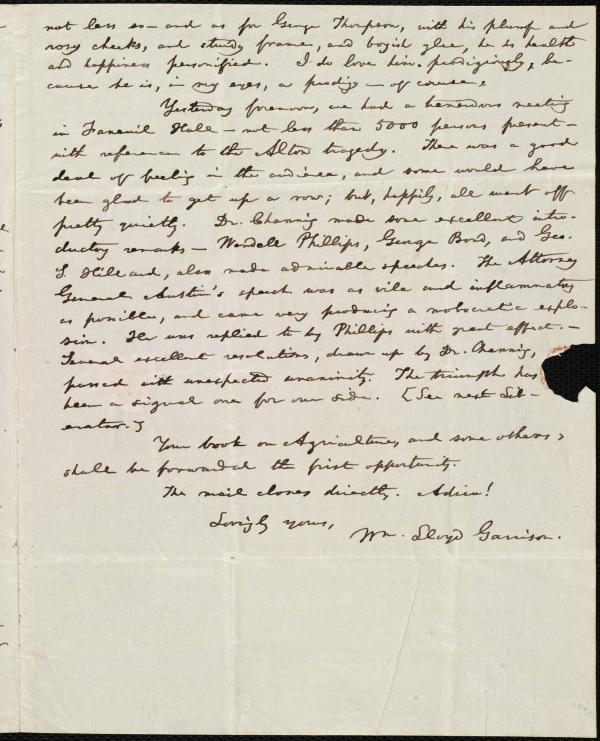 not less so — and as for George Thompson, with his plump and
rosy cheeks, and sturdy frame, and boyish glee, he is health
and happiness personified. I do love him prodigiously, be-
cause he is, in my eyes, a prodigy — of course.
Yesterday forenoon, we had a tremendous meeting
in Faneuil Hall — not less than 5000 persons present —
with reference to the Alton tragedy. There was a good
deal of feeling in the audience, and some would have
been glad to get up a row; but, happily, all went off
pretty quietly. Dr. Channing made some excellent intro-
ductory remarks — Wendell Phillips, George Bond, and Geo.
S. Hillard, also made admirable speeches. The Attorney
General Austin's speech was as vile and inflammatory
as possible, and came very producing a mobocratic explo-
sion. He was replied to by Phillips with great effect. —
Several excellent resolutions, drawn up by Dr. Channing,
passed with unexpected unanimity. The triumph has
been a signal one for our side. [See next Lib-
erator.]
Your book on Agriculture, and some others,
shall be forwarded the first opportunity.
The mail closes directly. Adieu!
Lovingly yours,
Wm. Lloyd Garrison.